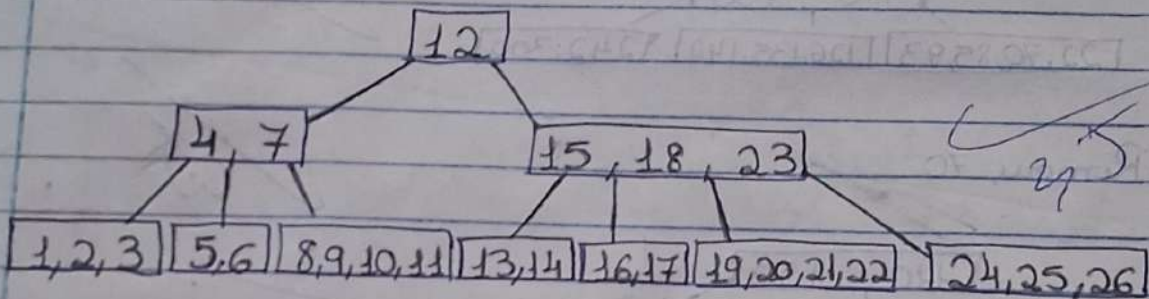 12
4, 7
15, 18, 23
1, 2, 3 5,6 8,9,10,11 13,14 16,17 19,20,21,22 24,25,26